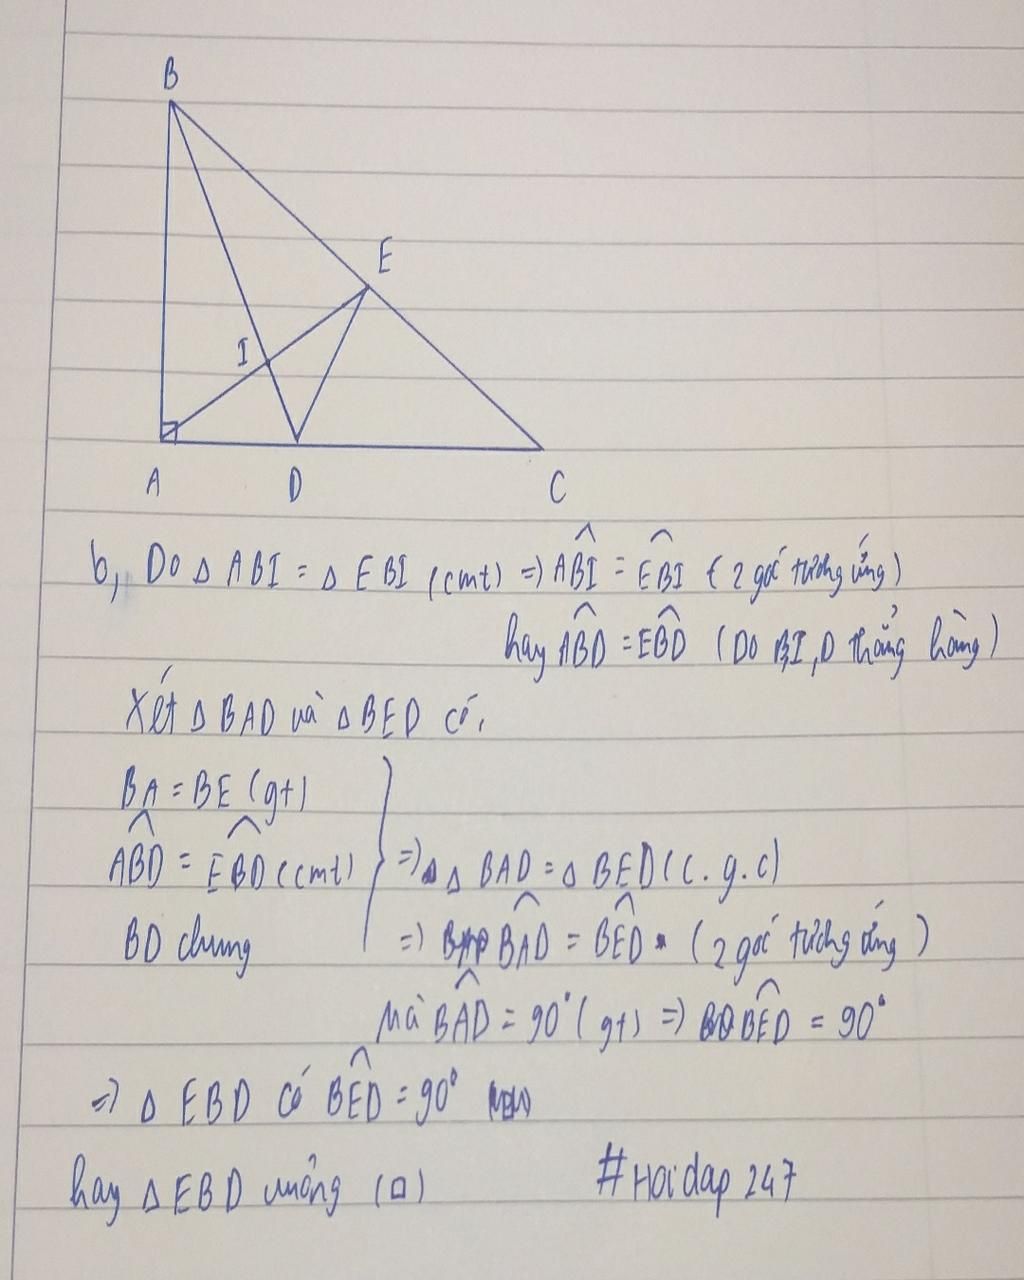 B
E
I
A D C
b, Do △ ABI = △ EBI (cmt) => ABI = EBI (2 góc tương ứng)
hay ABD = EBD (Do B,I,D thẳng hàng)
Xét △ BAD và △ BED có,
BA = BE (gt)
ABD = EBD (cmt) => △ BAD = △ BED (c.g.c)
BD chung => BAD = BED (2 góc tương ứng)
Mà BAD = 90° (gt) => BED = 90°
=> △ EBD có BED = 90°
hay △ EBD vuông (□)
#Hoidap 247